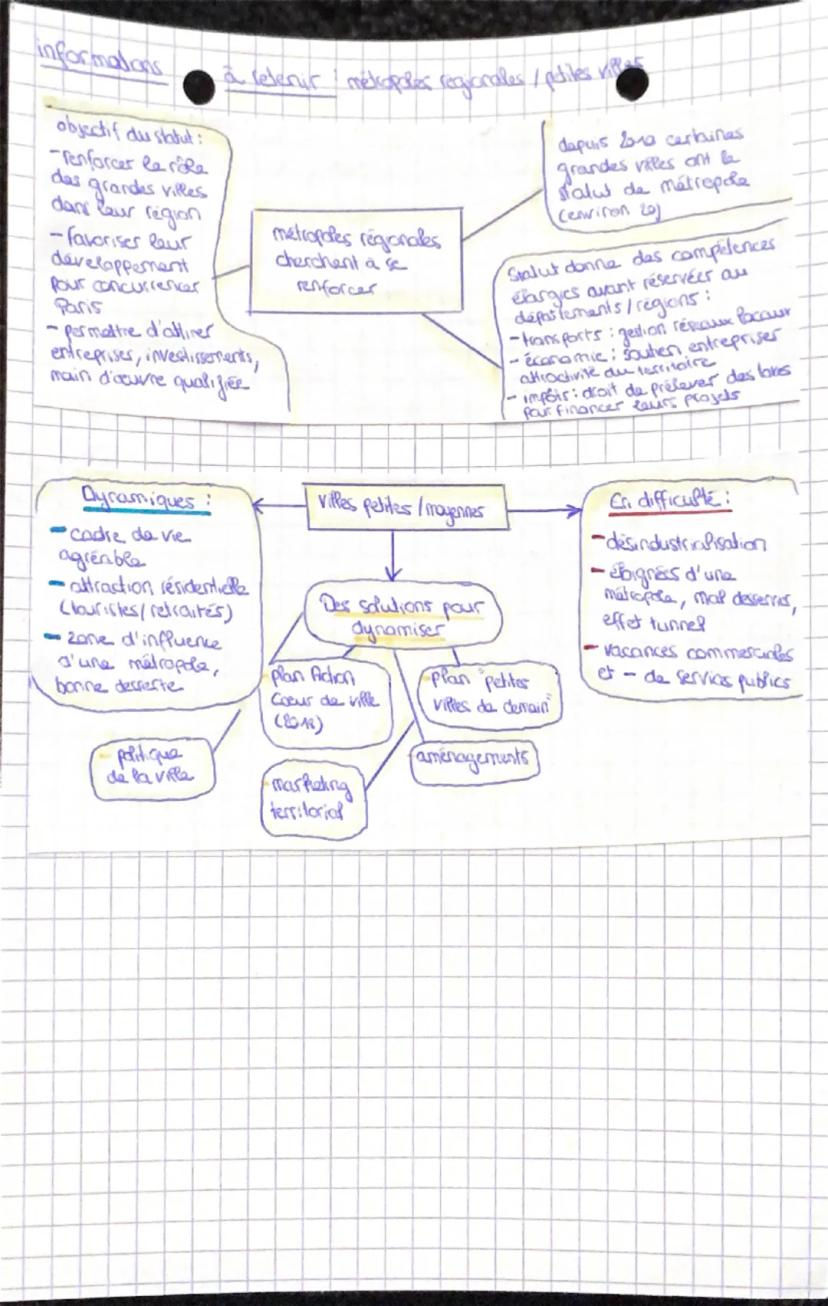 informations à retenir : métropoles régionales / petites villes
objectif du statut :
- renforcer le rôle
des grandes villes
dans leur région
- favoriser leur
développement
pour concurrencer
Paris
- permettre d'attirer
entreprises, investissements,
main d'œuvre qualifiée
métropoles régionales
cherchent à se
renforcer
depuis 2010 certaines
grandes villes ont le
statut de métropole
(environ 20)
Statut donne des compétences
élargies avant réservées au
départements/régions :
- transports : gestion réseaux locaux
- économie : soutien entreprises
attractivité du territoire
- impôt : droit de prélever des taxes
pour financer leurs projets
Villes petites / moyennes
Dynamiques :
- cadre de vie
agréable
- attraction résidentielle
(touristes/retraités)
- zone d'influence
d'une métropole,
bonne desserte
Des solutions pour
dynamiser
plan Action
Cœur de ville
(2018)
plan "petites
villes de demain"
- politique
de la ville
- marketing
territorial
aménagements
En difficulté :
- désindustrialisation
- éloignées d'une
métropole, mal desservis,
effet tunnel
- vacances commerciales
et - de services publics